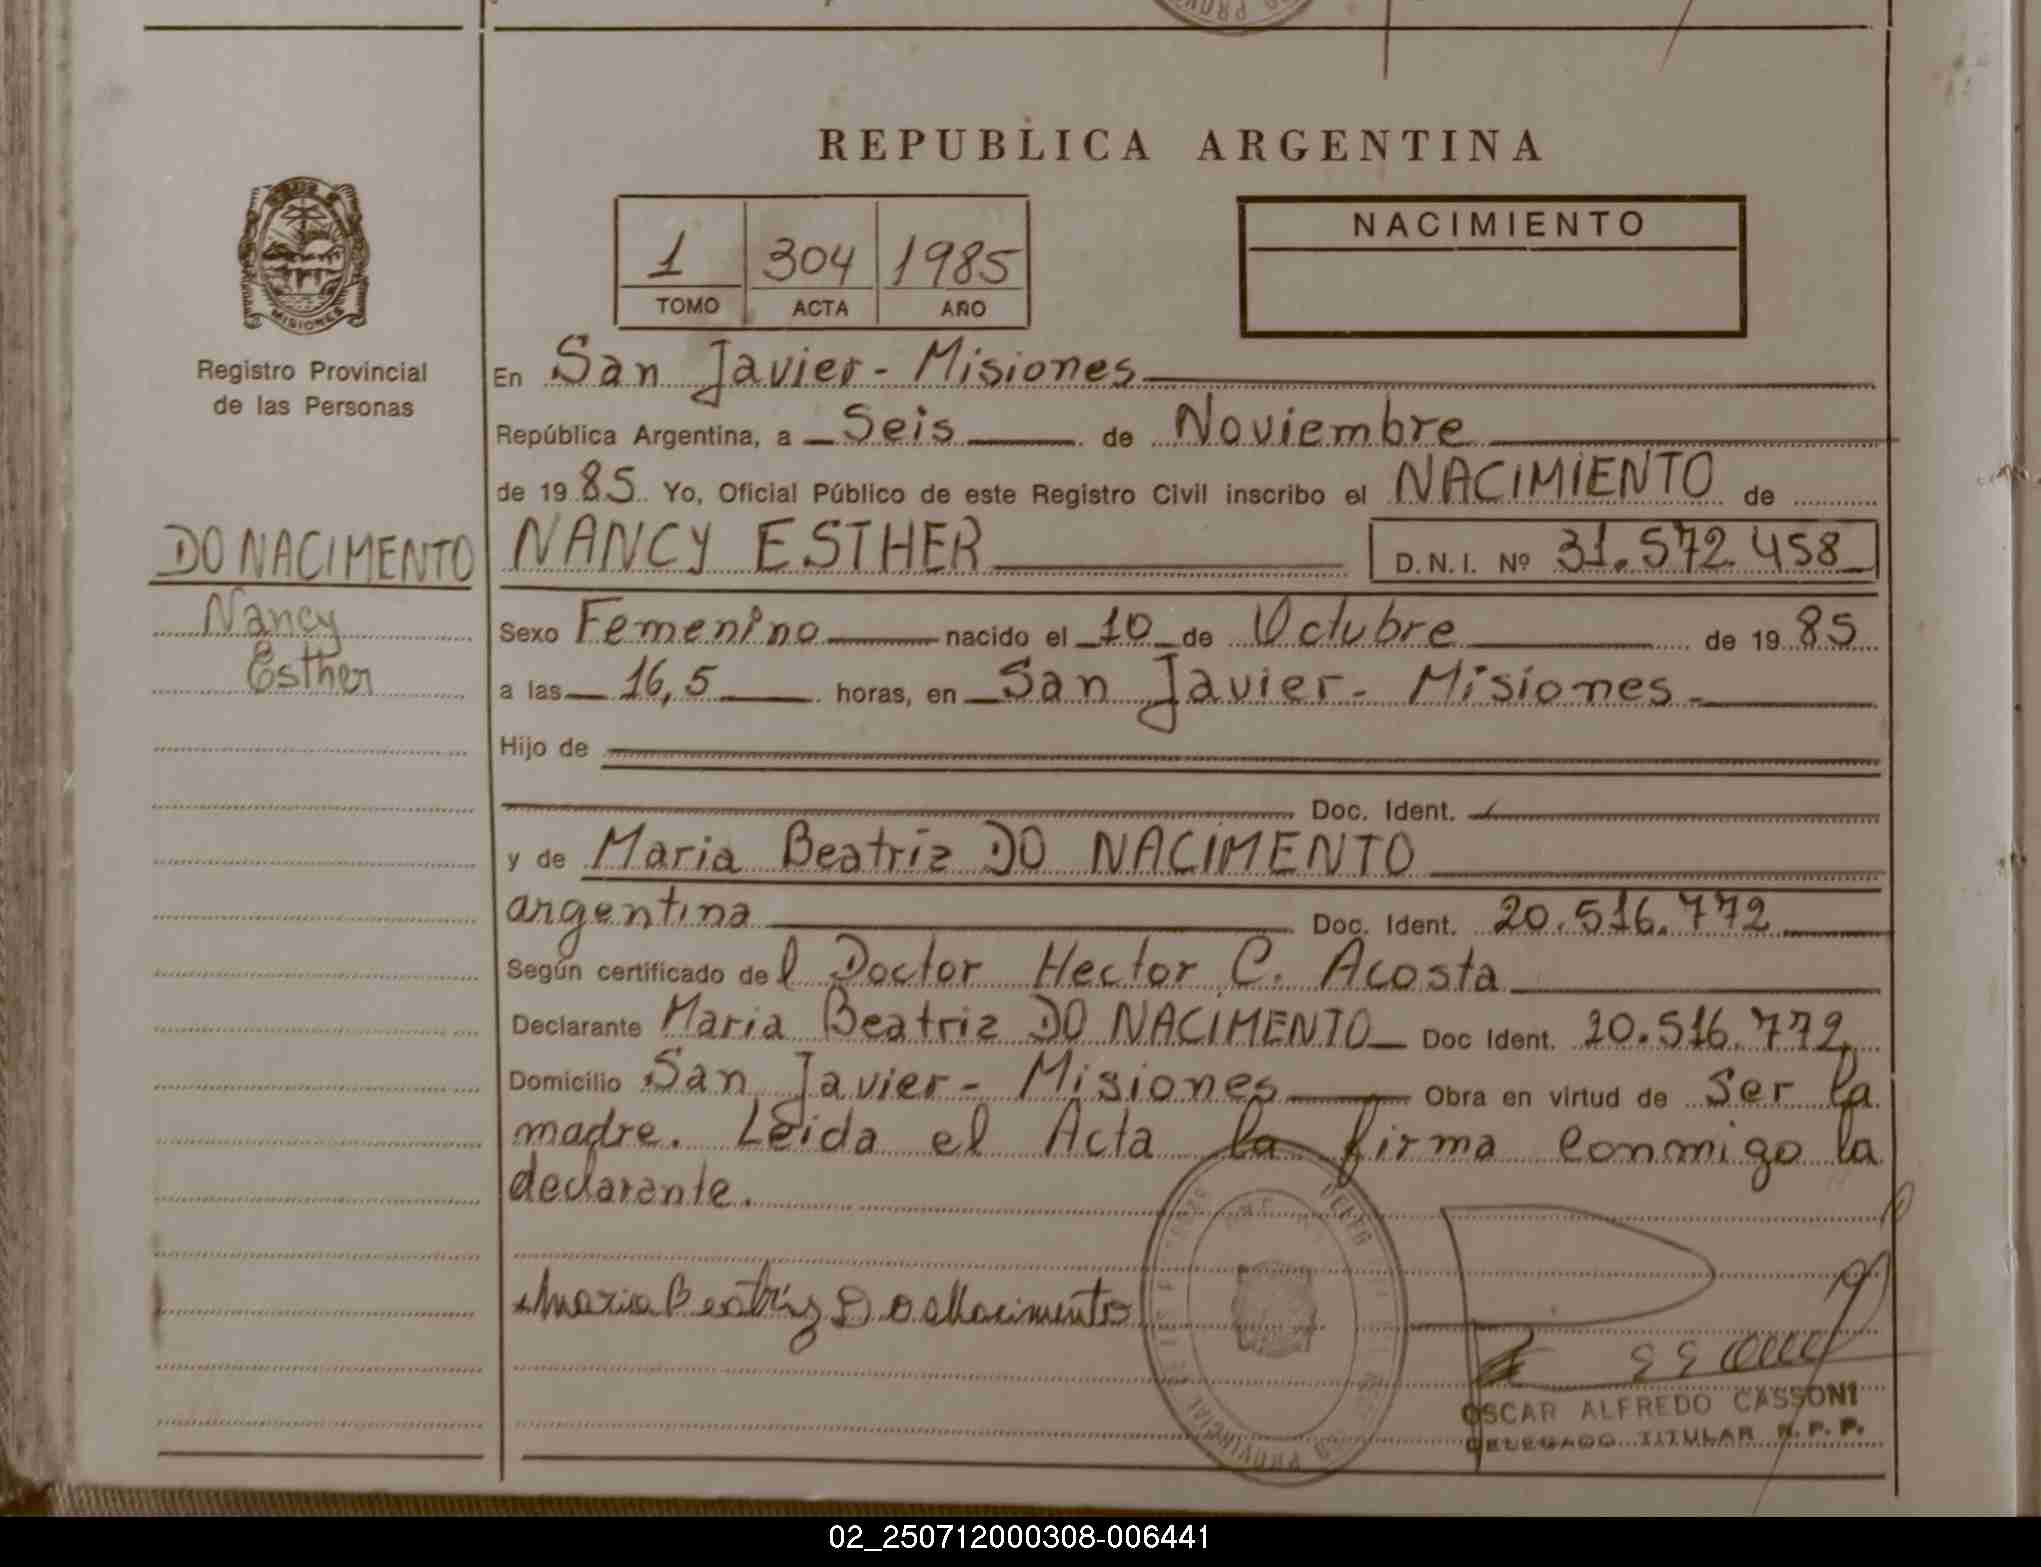 REPUBLICA ARGENTINA
MISIONES
Registro Provincial
de las Personas
1 304 1985
TOMO ACTA AÑO
NACIMIENTO
En San Javier - Misiones
República Argentina, a Seis de Noviembre
de 1985 Yo, Oficial Público de este Registro Civil inscribo el NACIMIENTO de
DO NACIMENTO
Nancy
Esther
NANCY ESTHER D.N.I. Nº 31.572.458
Sexo Femenino nacido el 10 de Octubre de 1985
a las 16,5 horas, en San Javier - Misiones
Hijo de
Doc. Ident.
y de Maria Beatriz DO NACIMENTO
argentina Doc. Ident. 20.516.772
Según certificado del Doctor Hector C. Acosta
Declarante Maria Beatriz DO NACIMENTO Doc Ident. 20.516.772
Domicilio San Javier - Misiones Obra en virtud de Ser la
madre. Leida el Acta la firma conmigo la
declarante.
Maria Beatriz Do Nacimento
OSCAR ALFREDO CASSONI
DELEGADO TITULAR R. P. P.
02_250712000308-006441